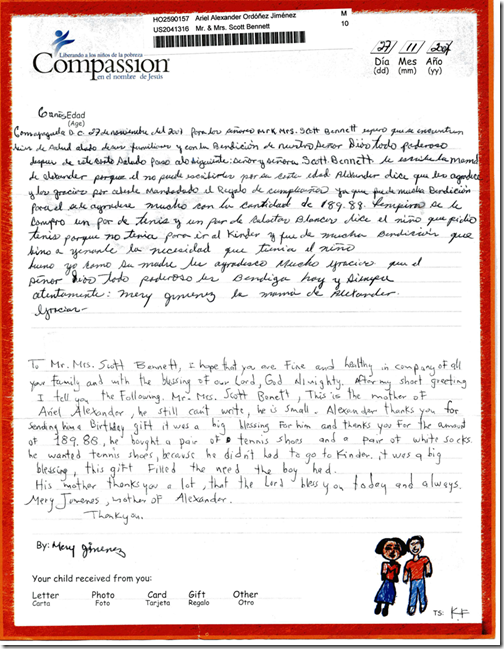 HO2590157 Ariel Alexander Ordóñez Jiménez M
US2041316 Mr. & Mrs. Scott Bennett 10
Liberando a los niños de la pobreza
Compassion
en el nombre de Jesús
27 / 11 /
Día Mes Año
(dd) (mm) (yy)
6 años Edad
(Age)
D.C. 27 de noviembre del para los señores Mr y Mrs. Scott Bennett espero que se encuentren
de Salud al lado de sus familiares y con la Bendición de nuestro Señor Dios todo poderoso
despues de este corto Saludo paso a lo siguiente: señor y señora Scott. Bennett le escribe la mamá
de alexander porque el no puede escribirles por su corta edad Alexander dice que les agradece
y les gracias por aberle Mandado el Regalo de cumpleaños ya que fue de mucha Bendición
para el se le agradece mucho con la cantidad de 189.88. se le
compro un par de tenis y un par de Blancas dice el niño que
tenis porque no tenia para ir al Kinder y fue de mucha Bendición que
bino a yenarle la necesidad que tenia el niño
yo como su madre les agradesco Mucho gracias que el
señor Dios todo poderoso les Bendiga hoy y siempre
atentamente: Mery gimenez la mamá de Alexander.
Gracias-
To Mr. Mrs. Scott Bennett, I hope that you are Fine and healthy in company of all
your family and with the blessing of our Lord, God Almighty. After my short greeting
I tell you the Following. Mr. Mrs. Scott Bonett, This is the mother of
Ariel Alexander, he still can't write, he is small. Alexander thanks you for
sending him a Birthday gift it was a big blessing For him and thanks you For the amount
of 189.88, he bought a pair of tennis shoes and a pair of white socks.
he wanted tennis shoes, because he didn't had to go to Kinder. it was a big
blessing, this gift Filled the need the boy had.
His mother thanks you a lot, that the Lord bless you today and always.
Mery Jimenes, mother of Alexander.
Thank you.
By: Mery gimenez
Your child received from you:
Letter Photo Card Gift Other
Carta Foto Tarjeta Regalo Otro
TS: KF